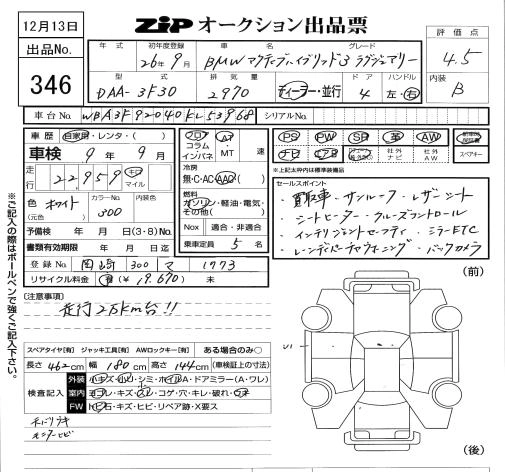 12月13日
出品No.
346
ZIP オークション出品票
年式
初年度登録
車名
グレード
26年9月
BMW アクティブハイブリッド3 ラグジュアリー
型式
排気量
ドア
ハンドル
DAA-3F30
2970
ディーラー・並行
4
左・右
評価点
4.5
内装
B
車台No.
WBA3F92040KL53968
シリアルNo.
車歴
自家用・レンタ・( )
車検
9年9月
走行
22,959
キロ
マイル
色
ホワイト
(元色)
カラーNo.
300
内装色
予備検 年 月 日(3・8)No.
書類有効期限 年 月 日迄
登録No.
岡崎 300 マ 1773
リサイクル料金
有(¥19.670) 未
フロア
コラム
インパネ
AT
MT
速
冷房
無・C・AC・AAC( )
燃料
ガソリン・軽油・電気・
その他( )
Nox
適合・非適合
乗車定員 5 名
PS
PW
SR
革
AW
ナビ
社外ナビ
社外AW
スペアキー
※上記太枠は標準装備品
セールスポイント
・買取車・サンルーフ・レザーシート
・シートヒーター・クルーズコントロール
・インテリジェントセーフティ・ミラーETC
・レーンディパーチャウォーニング・バックカメラ
※ご記入の際はボールペンで強くご記入下さい。
(注意事項)
走行2万km台!!
スペアタイヤ[有] ジャッキ工具[有] AWロックキー[有] ある場合のみ○
長さ462cm 幅180cm 高さ144cm (車検証上の寸法)
検査記入
外装
小キズ・小凹・シミ・ホイルA・ドアミラー(A・ワレ)
室内
ヨゴレ・キズ・スレ・コゲ・穴・キレ・破れ・ウキ
FW
トビ石・キズ・ヒビ・リペア跡・X要ス
(前)
(後)